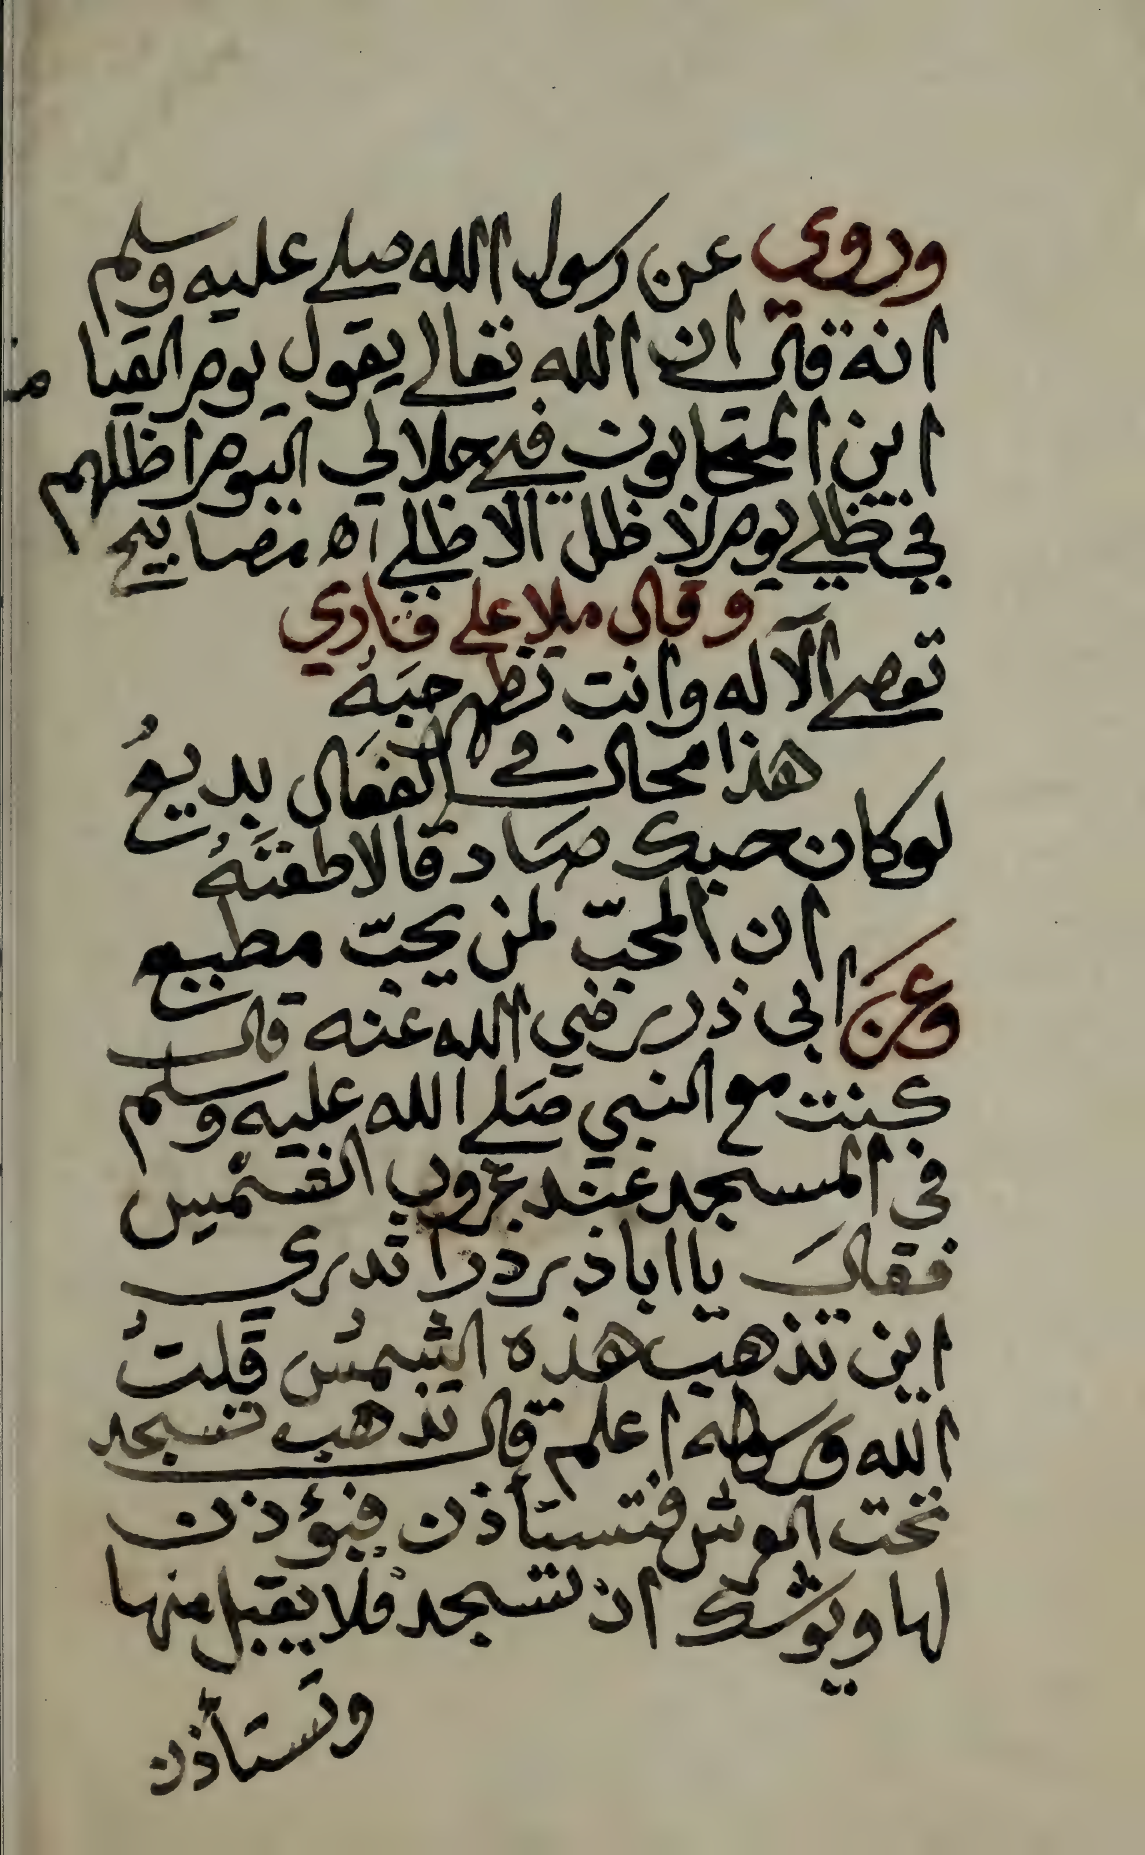 وروي عن رسول الله صلے عليه وسلم
انه قال ان الله تعالے يقول يوم القيامـ
اين المتحابون في جلالي اليوم اظلهم
في ظلے يوم لا ظل الا ظلے اه مصابيح
وقال ملا علے قاري
تعصے الآله وانت تظهر حبَهُ
هذا محال في الفعَال بديعُ
لوكان حبك صَادقا لاطعتَهُ
ان المحبّ لمن يحبّ مطيع
وعَن ابي ذر رضي الله عنه قال
كنت مع النبي صَلے الله عليه وسلم
في المسجد عند غروب الشمس
فقالَ يا اباذر اتدري
اين تذهب هذه الشمسُ قلتُ
الله ورسوله اعلم قال تذهب تسجد
تحت العرش فتستأذن فيؤذن
لها ويوشك ان تسجد فلا يقبل منها
وتستأذن